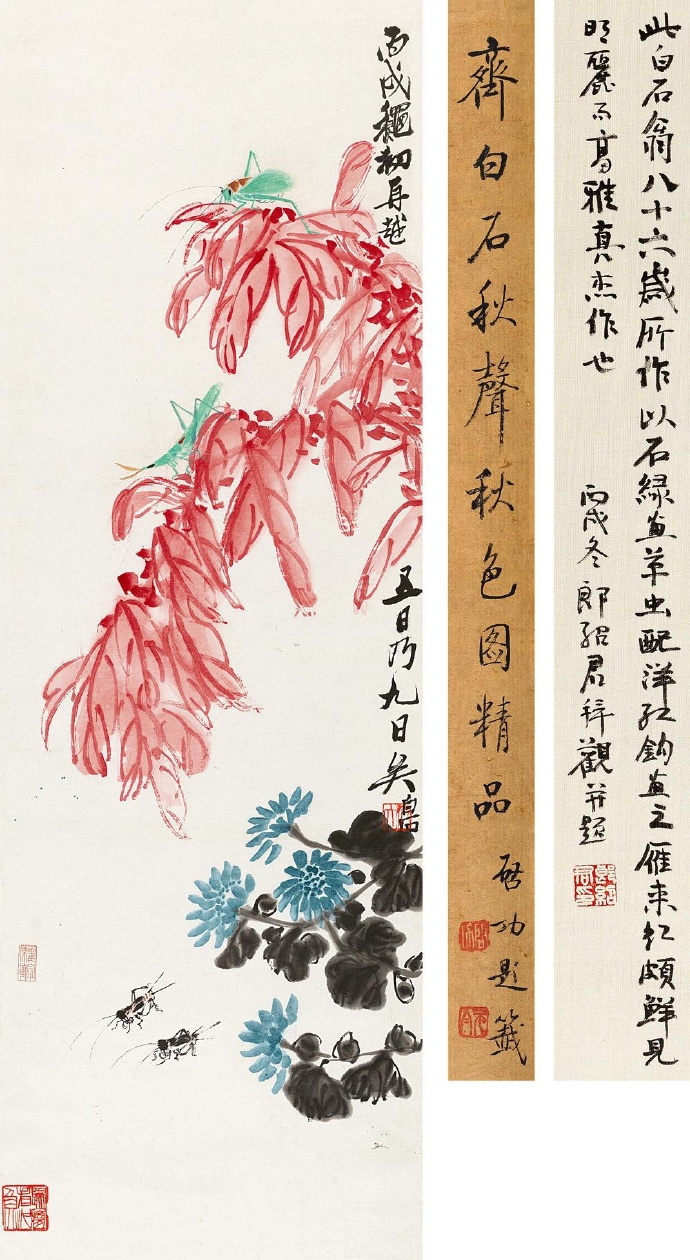 丙戌龝初再越
五日乃九日矣白石
齊白石秋聲秋色圖精品
启功題籤
此白石翁八十六歲所作以石緑畫草虫配洋红鈎畫之雁来红頗鮮見
明麗而高雅真杰作也
丙戌冬郎紹君拜觀并題
郎紹君印